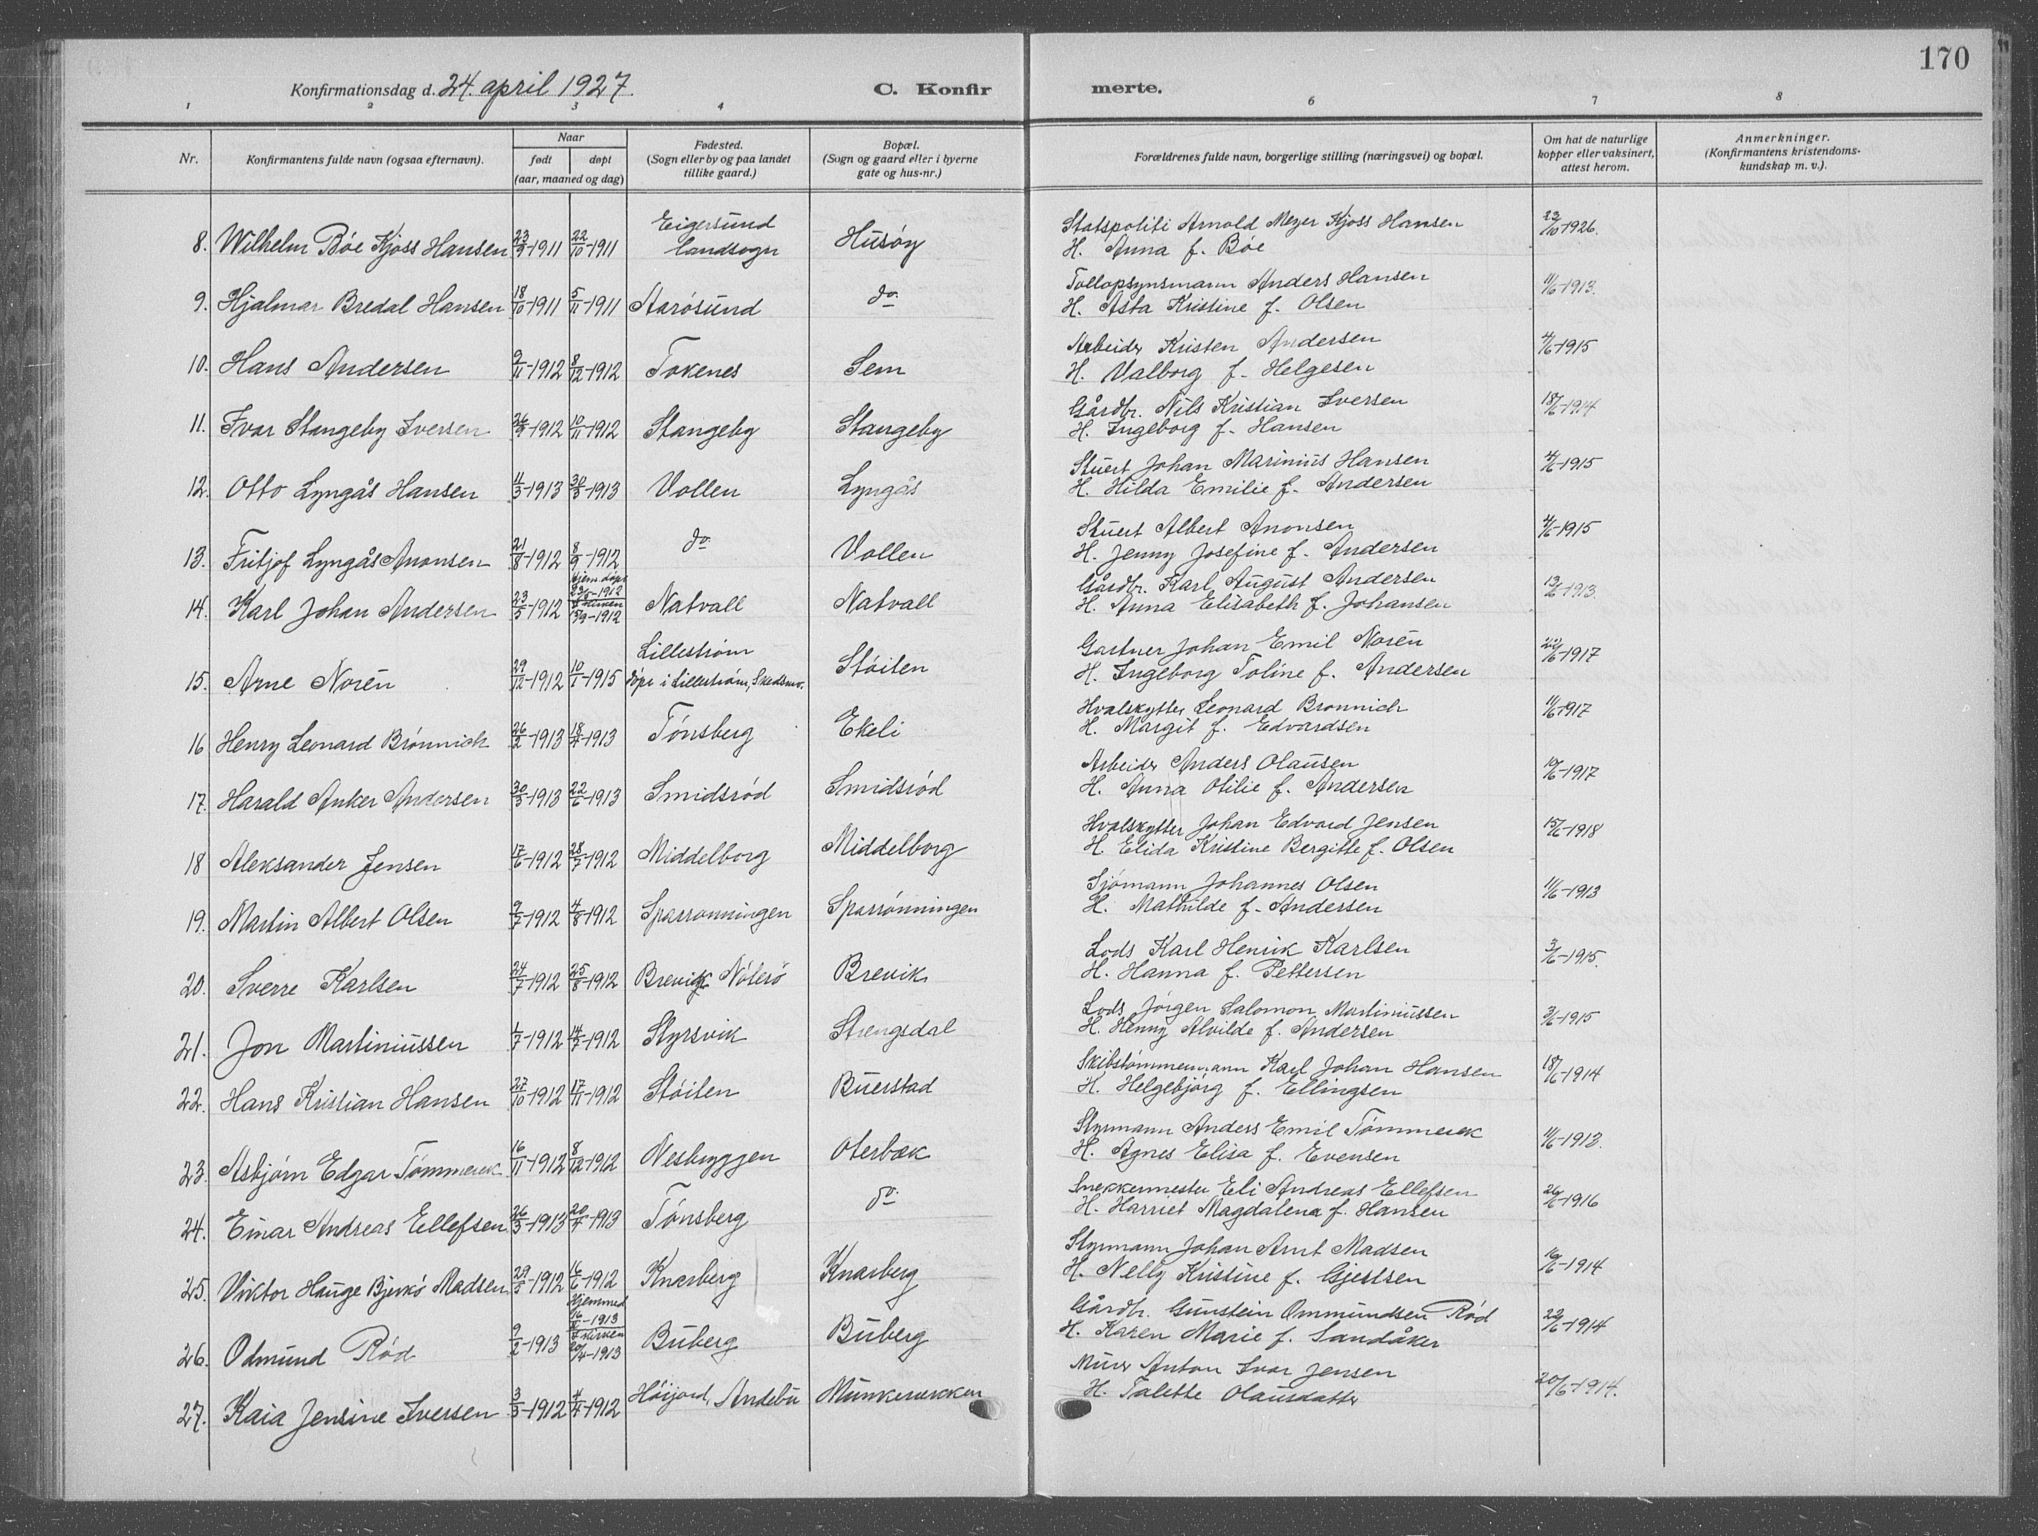 170
Konfirmationsdag d. 24. april 1927. C. Konfir merte.
1 2 3 4 6 7 8
Nr. Konfirmantens fulde navn (ogsaa efternavn). Naar født døpt (aar, maaned og dag) Fødested. (Sogn eller by og paa landet tillike gaard.) Bopæl. (Sogn og gaard eller i byerne gate og hus-nr.) Forældrenes fulde navn, borgerlige stilling (næringsvei) og bopæl. Om hat de naturlige kopper eller vaksinert, attest herom. Anmerkninger. (Konfirmantens kristendoms-kundskap m. v.).
8. Wilhelm Bøe Kjoss Hansen 23/9-1911 22/10-1911 Eigersund landsogn Husøy Statspoliti Arnold Meyer Kjoss Hansen 23/10-1926.
H. Anna f. Bøe
9. Hjalmar Bredal Hansen 18/10-1911 5/11-1911 Aarøsund do. Tollopsynsmann Anders Hansen 11/6-1913.
H. Asta Kristine f. Olsen
10. Hans Andersen 9/11-1912 8/12-1912 Tokenes Sem Arbeider Kristen Andersen 4/6-1915
H. Valborg f. Helgesen
11. Ivar Stangeby Iversen 26/9-1912 10/11-1912 Stangeby Stangeby Gårdbr. Nils Kristian Iversen 18/6-1914
H. Ingeborg f. Hansen
12. Otto Lyngås Hansen 11/3-1913 30/3-1913 Vollen Lyngås Stuert Johan Marinius Hansen 4/6-1915
H. Hilda Emilie f. Andersen
13. Fritjof Lyngås Anonsen 21/8-1912 8/9-1912 do. Vollen Stuert Albert Anonsen 4/6-1915
H. Jenny Josefine f. Andersen
14. Karl Johan Andersen 23/5-1912 Hjem.døpt 23/5-1912 I kirken 15/9-1912 Natvall Natvall Gårdbr. Karl August Andersen 13/6-1913.
H. Anna Elisabeth f. Johansen
15. Arne Norén 29/12-1912 10/1-1915 Lillestrøm døpt i Lillestrøm, Skedsmo. Støiten Gartner Johan Emil Norén 20/6-1917
H. Ingeborg Toline f. Andersen
16 Henry Leonard Brønnich 26/2-1913 18/4-1913 Tønsberg Ekeli Hvalskytter Leonard Bronnich 11/6-1917
H. Margit f. Edvardsen
17. Harald Anker Andersen 30/3-1913 22/6-1913 Smidsrød Smidsrød Arbeider Anders Olausen 10/6-1917
H. Anna Otilie f. Andersen
18 Aleksander Jensen 17/6-1912 28/7-1912 Middelborg Middelborg Hvalskytter Johan Edvard Jensen 15/6-1918
H. Elida Kristine Bergitte f. Olsen
19. Martin Albert Olsen 9/7-1912 4/8-1912 Sparrønningen Sparrønningen Sjømann Johannes Olsen 11/6-1913
H. Mathilde f. Andersen
20. Sverre Karlsen 24/7-1912 25/8-1912 Brevik Nøterø Brevik Lods Karl Henrik Karlsen 3/6-1915.
H. Hanna f. Pettersen
21. Jon Martiniussen 1/7-1912 14/7-1912 Styrsvik Strengsdal Lods Jørgen Salomon Martiniussen 3/6-1915
H. Henny Alvilde f. Andersen
22. Hans Kristian Hansen 27/10-1912 17/11-1912 Støiten Buerstad Skibstømmermann Karl Johan Hansen 18/6-1914
H. Helgebjørg f. Ellingsen
23. Asbjørn Edgar Tømmerek 16/11-1912 8/12-1912 Nesbryggen Oterbæk Styrmann Anders Emil Tømmerek 11/6-1913.
H. Agnes Elisa f. Evensen
24. Einar Andreas Ellefsen 26/3-1913 20/4-1913 Tønsberg do. Snekkermester Eli Andreas Ellefsen 26/6-1916
H. Harriet Magdalena f. Hansen
25. Viktor Hauge Bjerkø Madsen 29/5-1912 16/6-1912 Knarberg Knarberg Styrmann Johan Arnt Madsen 16/6-1914
H. Nelly Kristine f. Gjestsen
26. Odmund Rød 9/2-1913 Hjemmed. I kirken 20/4-1913 Buberg Buberg Gårdbr. Gunstein Ommundsen Rød 22/6-1914
H. Karen Marie f. Sandåker
27. Kaia Jensine Iversen 3/3-1912 4/4-1912 Høijord, Andebu Munkerekken Murer Anton Ivar Jensen 20/6-1914.
H. Talette Olausdatter